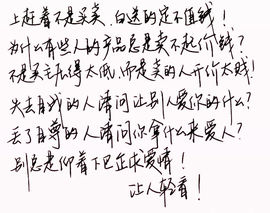 上赶着不是买卖，白送的定不值钱！
为什么有些人的产品总是卖不起价钱？
不是买主私得太低，而是卖的人开价太贱！
失去自我的人请问让别人爱你的什么？
丢了自尊的人请问你拿什么来爱人？
别总是仰着下巴正求爱情！
让人轻看！